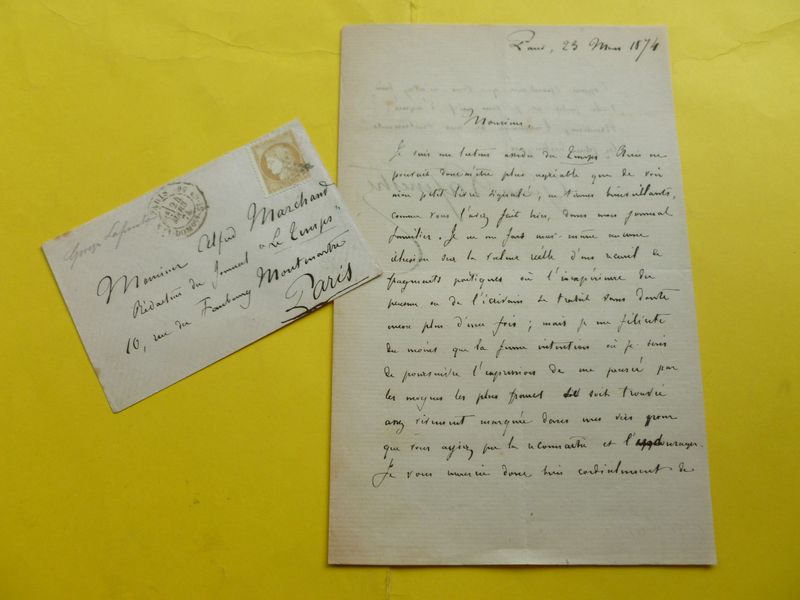 Paris, 23 Mars 1874
Monsieur,
Je suis un lecteur assidu du Temps. Rien ne
pouvait donc m'être plus agréable que de voir
mon petit livre signalé, en termes bienveillants,
comme vous l'avez fait hier, dans mon journal
familier. Je ne me fais moi-même aucune
illusion sur la valeur réelle d'un recueil de
fragments poétiques où l'inexpérience du
penseur ou de l'écrivain se trahit sans doute
encore plus d'une fois ; mais je me félicite
du moins que la ferme intention où je suis
de poursuivre l'expression de ma pensée par
les moyens les plus francs se soit trouvée
assez vivement marquée dans mes vers pour
que vous ayez pu la reconnaître et l'encourager.
Je vous remercie donc bien cordialement de
Monsieur Alfred Marchand
Rédacteur du Journal "Le Temps"
10, rue du Faubourg Montmartre
Paris